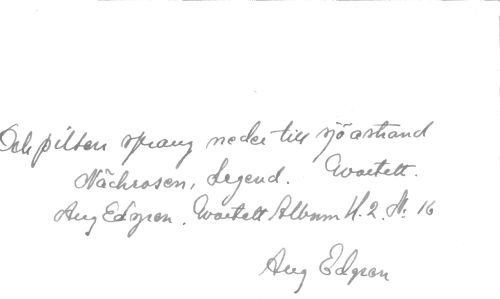 Och pilten sprang neder till sjöastrand
Näckrosen, Legend. Kvartett.
Aug Edgren. Kvartett Album H. 2. Nr 16
Aug Edgren